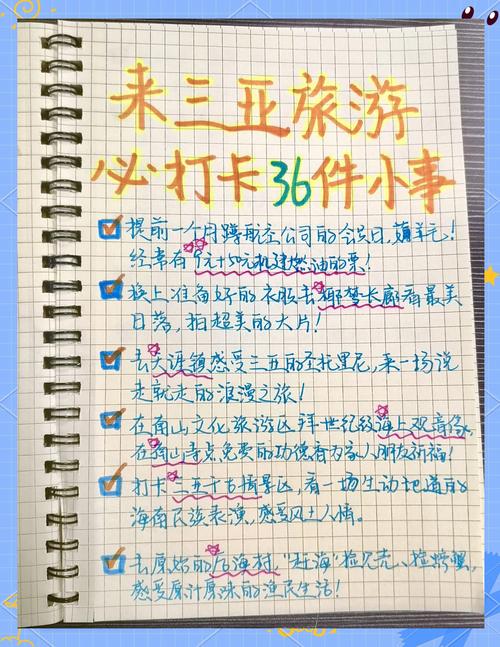 来三亚旅游
必打卡36件小事
提前一个月蹲航空公司的会员日,薅羊毛!
经常有9元+50元机建燃油的票!
换上准备好的衣服去椰梦长廊看最美
日落,拍超美的大片!
去天涯镇感受三亚的圣托里尼,来一场说
走就走的浪漫之旅!
在南山文化旅游区拜世纪级海上观音像,
在南山寺点免费的功德香为家人朋友祈福!
打卡 景区,看一场生动地道的
海南民族表演,感受风土人情。
去原始的后海村,"赶海"捡贝壳、捡螃蟹,
感受原汁原味的渔民生活!